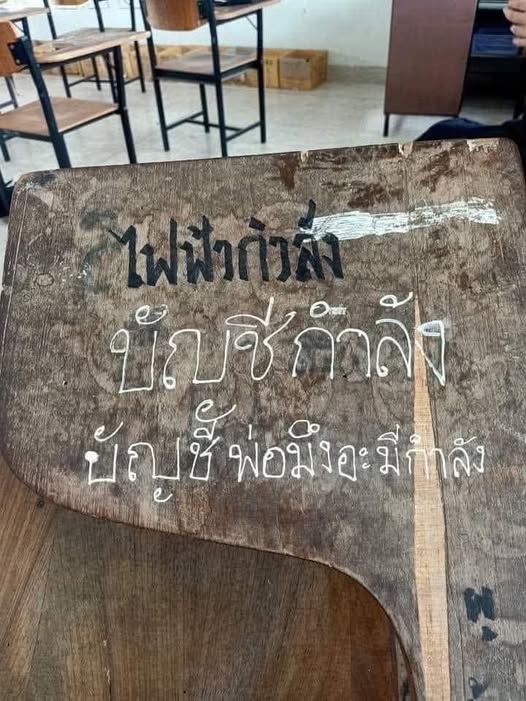 ไฟฟ้ากำลัง
บัญชีกำลัง
บัญชี พ่อมึงอะมีกำลัง